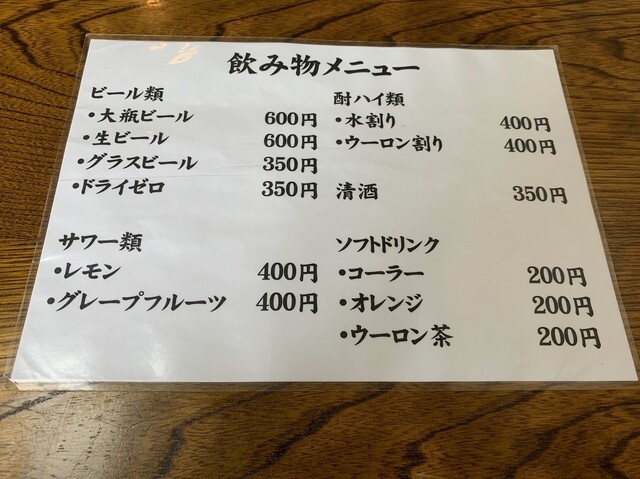 飲み物メニュー
ビール類
・大瓶ビール 600円
・生ビール 600円
・グラスビール 350円
・ドライゼロ 350円
サワー類
・レモン 400円
・グレープフルーツ 400円
酎ハイ類
・水割り 400円
・ウーロン割り 400円
清酒 350円
ソフトドリンク
・コーラー 200円
・オレンジ 200円
・ウーロン茶 200円